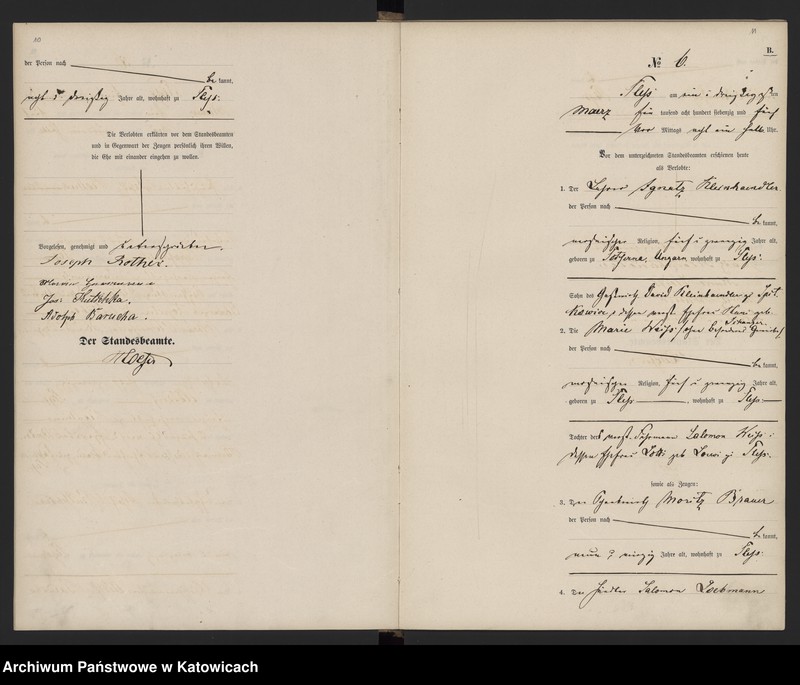 10
der Person nach
be kannt,
acht u. dreißig Jahre alt, wohnhaft zu Pleß.
Die Verlobten erklärten vor dem Standesbeamten
und in Gegenwart der Zeugen persönlich ihren Willen,
die Ehe mit einander eingehen zu wollen.
Vorgelesen, genehmigt und unterschrieben.
Joseph Rother.
Jos: Kutschka.
Adolph Barucha.
Der Standesbeamte.
11
B.
№ 6.
Pleß am ein u dreißigsten
Maerz Ein tausend acht hundert siebenzig und fünf
Vor Mittags acht ein halb Uhr.
Vor dem unterzeichneten Standesbeamten erschienen heute
als Verlobte:
1. Der Lehrer Ignatz Kleinhaendler
der Person nach
be kannt,
mosaischer Religion, fünf u zwanzig Jahre alt,
geboren zu Ungarn, wohnhaft zu Pleß.
Sohn des Gastwirth David Kleinhaendler zu
dessen Ehefrau geb.
2. Die Marie Weiss
der Person nach
be kannt,
mosaischer Religion, fünf u zwanzig Jahre alt,
geboren zu Pleß, wohnhaft zu Pleß
Tochter des Salomon Weiss u
dessen Ehefrau geb Loewi zu Pleß.
sowie als Zeugen:
3. Der Moritz Brauer
der Person nach
be kannt,
neun u Jahre alt, wohnhaft zu Pleß.
4. Der Händler Salomon Loebmann
Archiwum Państwowe w Katowicach